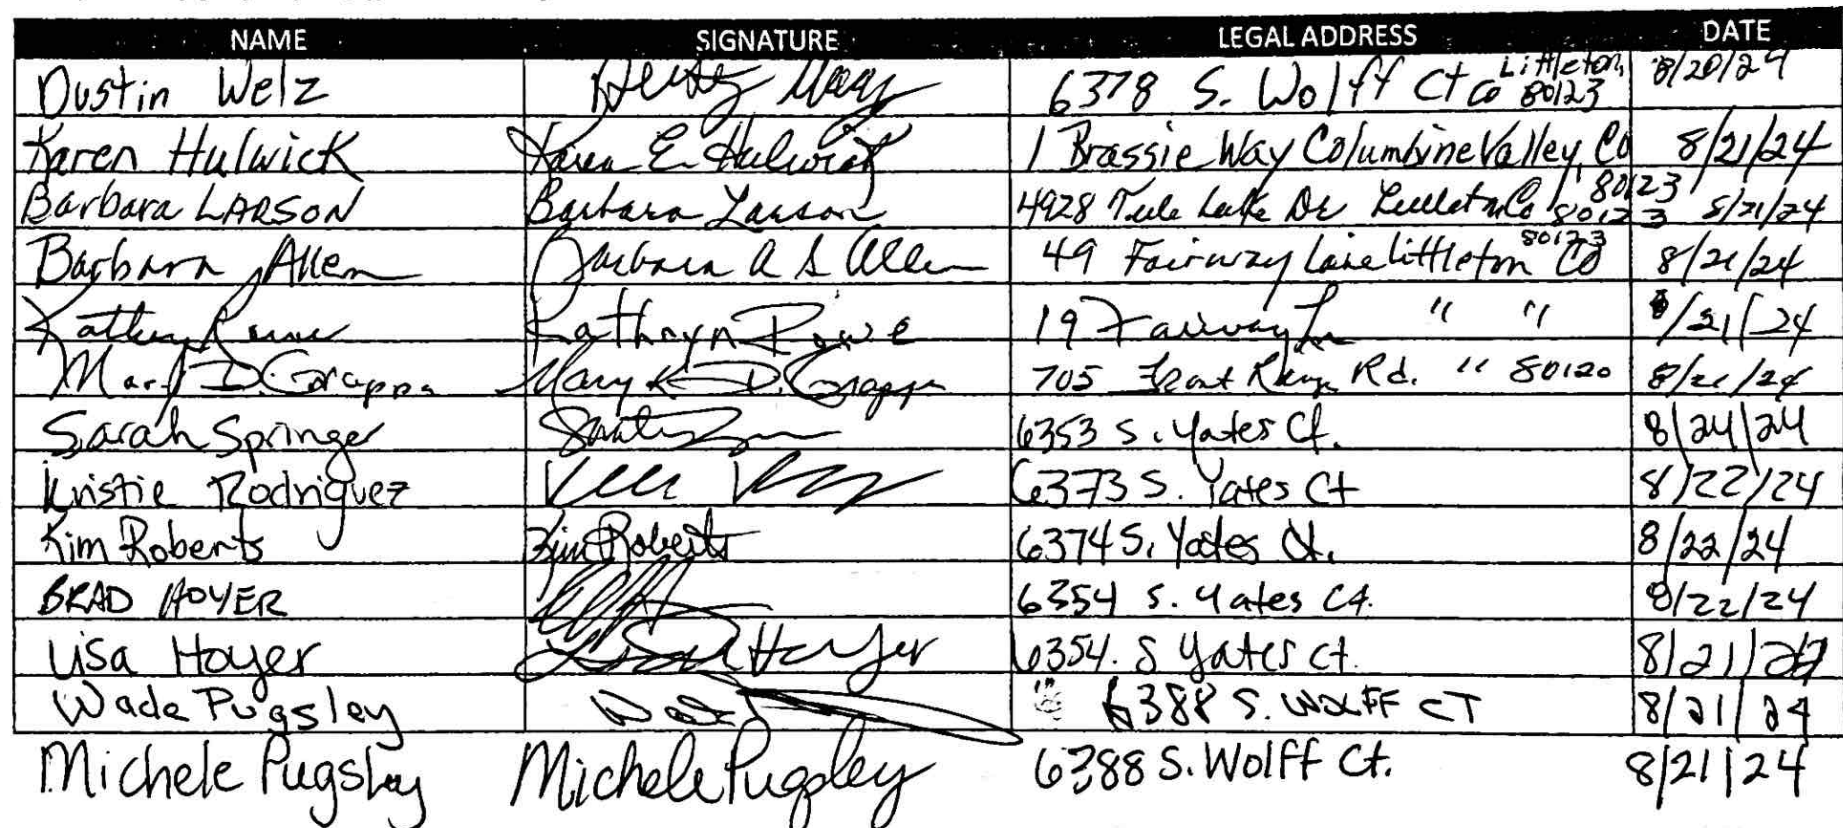 NAME SIGNATURE LEGAL ADDRESS DATE
Dustin Welz 6378 S. Wolff Ct Littleton, Co 80123 8/20/24
Karen Hulwick Karen E. Hulwick 1 Brassie Way Columbine Valley, Co 80123 8/21/24
Barbara LARSON Barbara Larson 4928 Tule Lake Dr Littleton Co 80123 8/21/24
Barbara Allen Barbara A S Allen 49 Fairway Lane Littleton Co 80123 8/21/24
Kathryn Rowe Kathryn Rowe 19 Fairway Ln " " 8/21/24
Mary D. Grappa Mary K D. Grappa 705 Front Range Rd. " 80120 8/21/24
Sarah Springer 6353 S. Yates Ct. 8/24/24
Kristie Rodriguez 6373 S. Yates Ct 8/22/24
Kim Roberts Kim Roberts 6374 S. Yates Ct. 8/22/24
BRAD HOYER 6354 S. Yates Ct. 8/22/24
Lisa Hoyer Lisa Hoyer 6354. S Yates ct. 8/21/
Wade Pugsley Wade 6388 S. WOLFF CT 8/21/24
Michele Pugsley Michele Pugsley 6388 S. Wolff Ct. 8/21/24